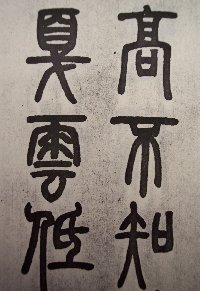 高不知
夏雲低